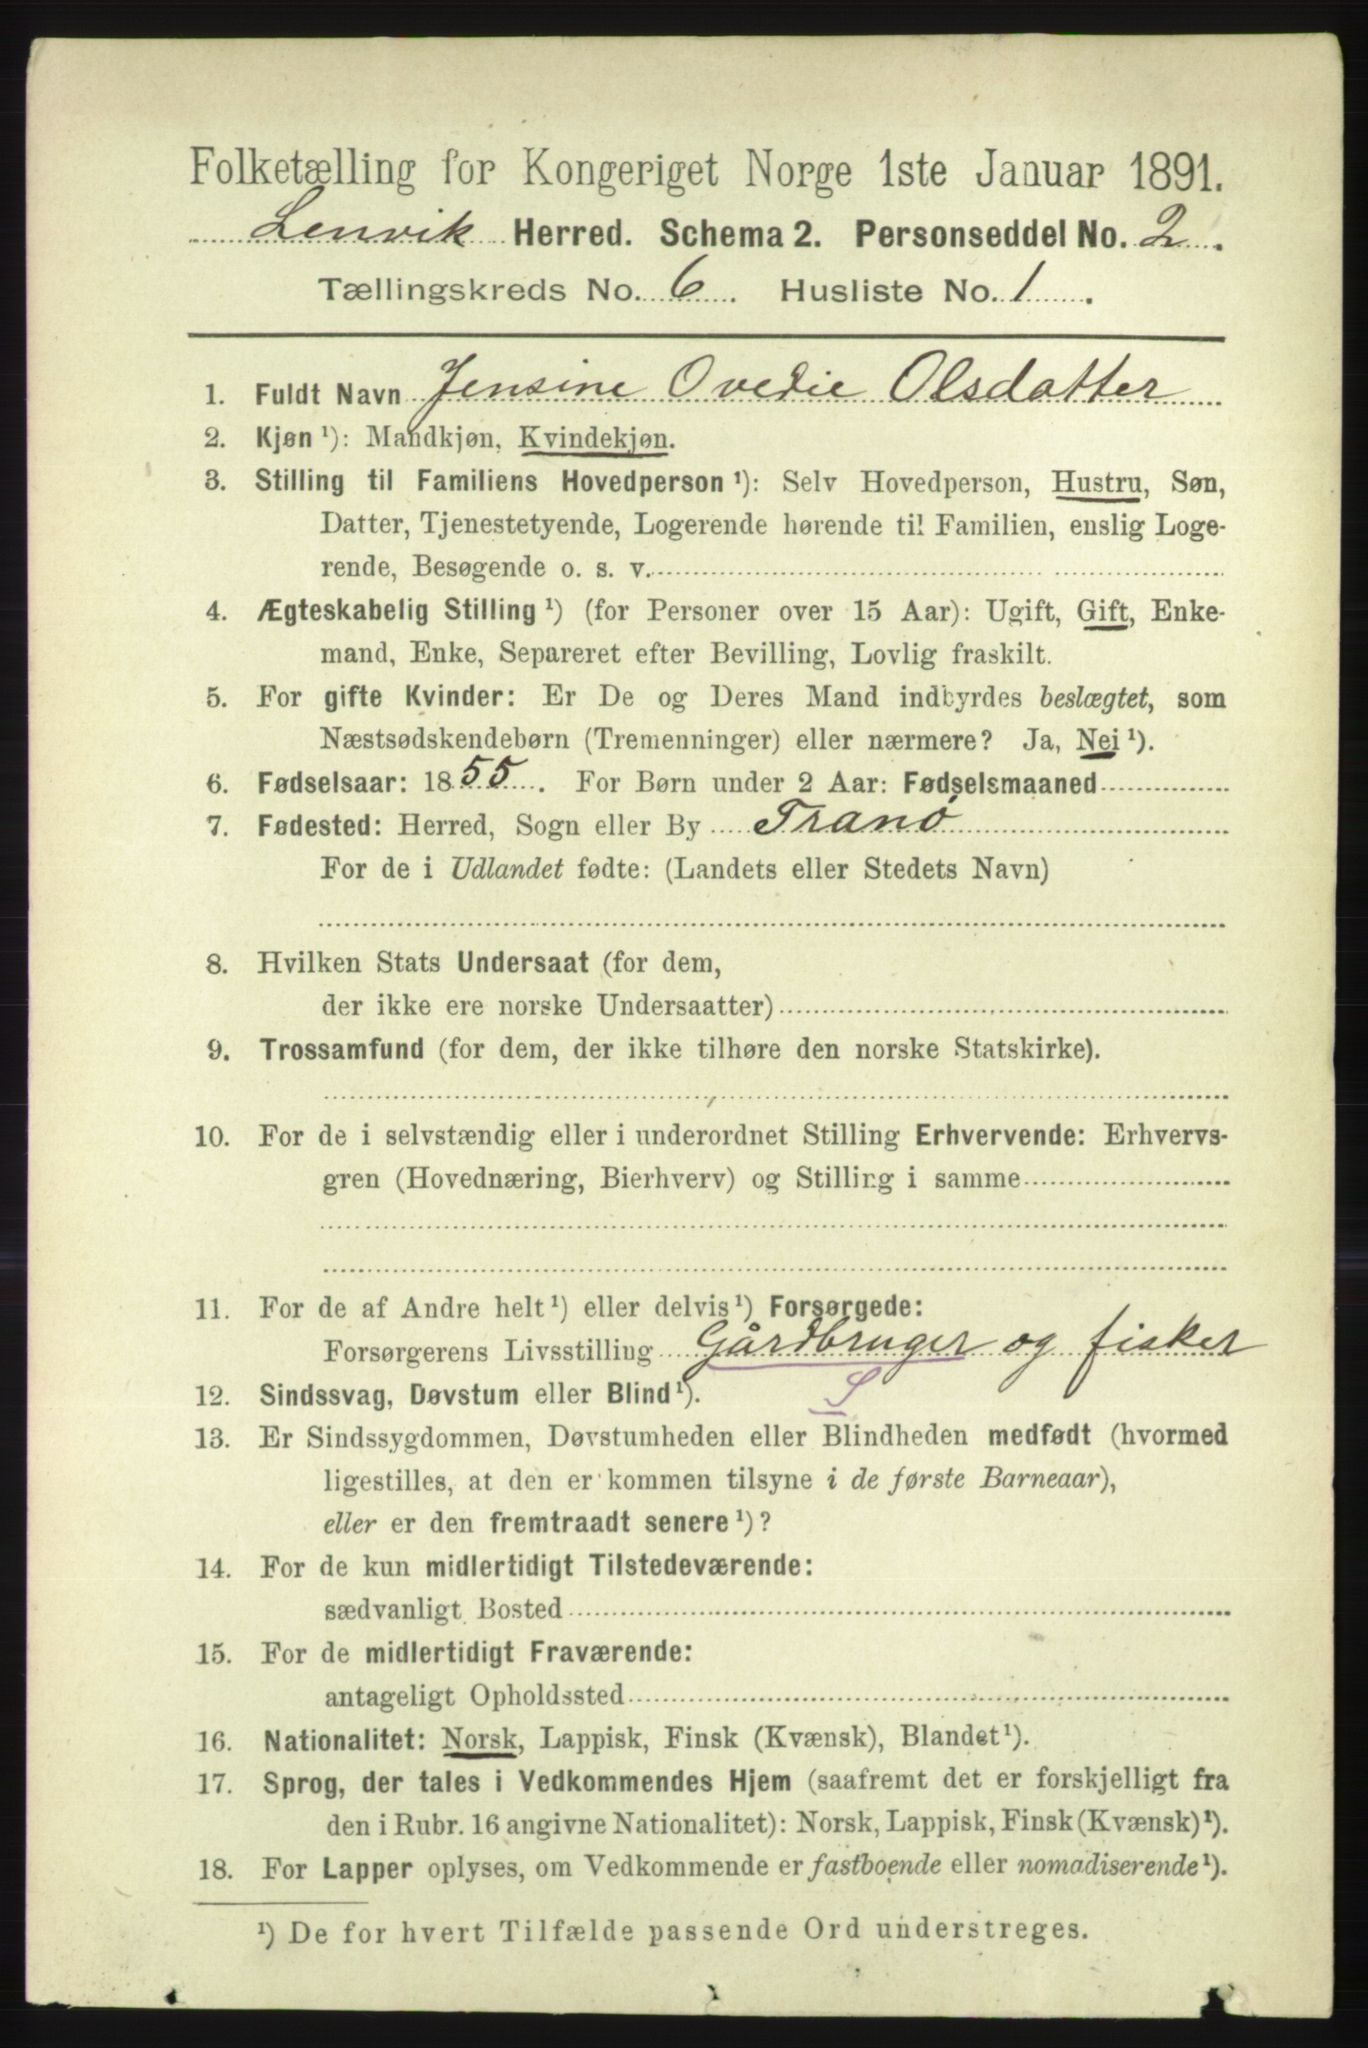 Folketælling for Kongeriget Norge 1ste Januar 1891.
Lenvik Herred. Schema 2. Personseddel No. 2.
Tællingskreds No. 6. Husliste No. 1.
1. Fuldt Navn Jensine Ovedie Olsdatter
2. Kjøn ¹): Mandkjøn, Kvindekjøn.
3. Stilling til Familiens Hovedperson ¹): Selv Hovedperson, Hustru, Søn,
Datter, Tjenestetyende, Logerende hørende til Familien, enslig Loge-
rende, Besøgende o. s. v.
4. Ægteskabelig Stilling ¹) (for Personer over 15 Aar): Ugift, Gift, Enke-
mand, Enke, Separeret efter Bevilling, Lovlig fraskilt.
5. For gifte Kvinder: Er De og Deres Mand indbyrdes beslægtet, som
Næstsødskendebørn (Tremenninger) eller nærmere? Ja, Nei ¹).
6. Fødselsaar: 1855. For Børn under 2 Aar: Fødselsmaaned
7. Fødested: Herred, Sogn eller By Tranø
For de i Udlandet fødte: (Landets eller Stedets Navn)
8. Hvilken Stats Undersaat (for dem,
der ikke ere norske Undersaatter)
9. Trossamfund (for dem, der ikke tilhøre den norske Statskirke).
10. For de i selvstændig eller i underordnet Stilling Erhvervende: Erhvervs-
gren (Hovednæring, Bierhverv) og Stilling i samme
11. For de af Andre helt ¹) eller delvis ¹) Forsørgede:
Forsørgerens Livsstilling Gårdbruger og fisker
12. Sindssvag, Døvstum eller Blind ¹). S
13. Er Sindssygdommen, Døvstumheden eller Blindheden medfødt (hvormed
ligestilles, at den er kommen tilsyne i de første Barneaar),
eller er den fremtraadt senere ¹)?
14. For de kun midlertidigt Tilstedeværende:
sædvanligt Bosted
15. For de midlertidigt Fraværende:
antageligt Opholdssted
16. Nationalitet: Norsk, Lappisk, Finsk (Kvænsk), Blandet ¹).
17. Sprog, der tales i Vedkommendes Hjem (saafremt det er forskjelligt fra
den i Rubr. 16 angivne Nationalitet): Norsk, Lappisk, Finsk (Kvænsk) ¹).
18. For Lapper oplyses, om Vedkommende er fastboende eller nomadiserende ¹).
¹) De for hvert Tilfælde passende Ord understreges.